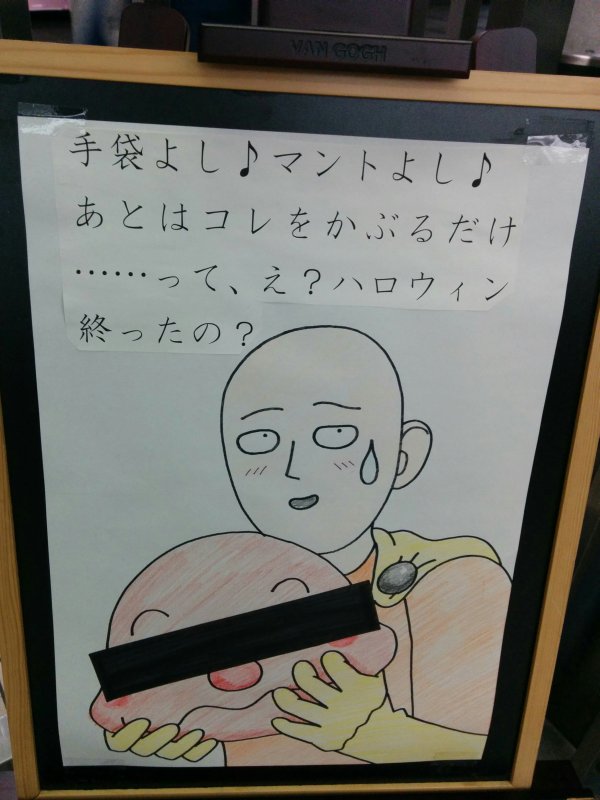 VAN GOGH
手袋よし♪マントよし♪
あとはコレをかぶるだけ
……って、え？ハロウィン
終ったの？